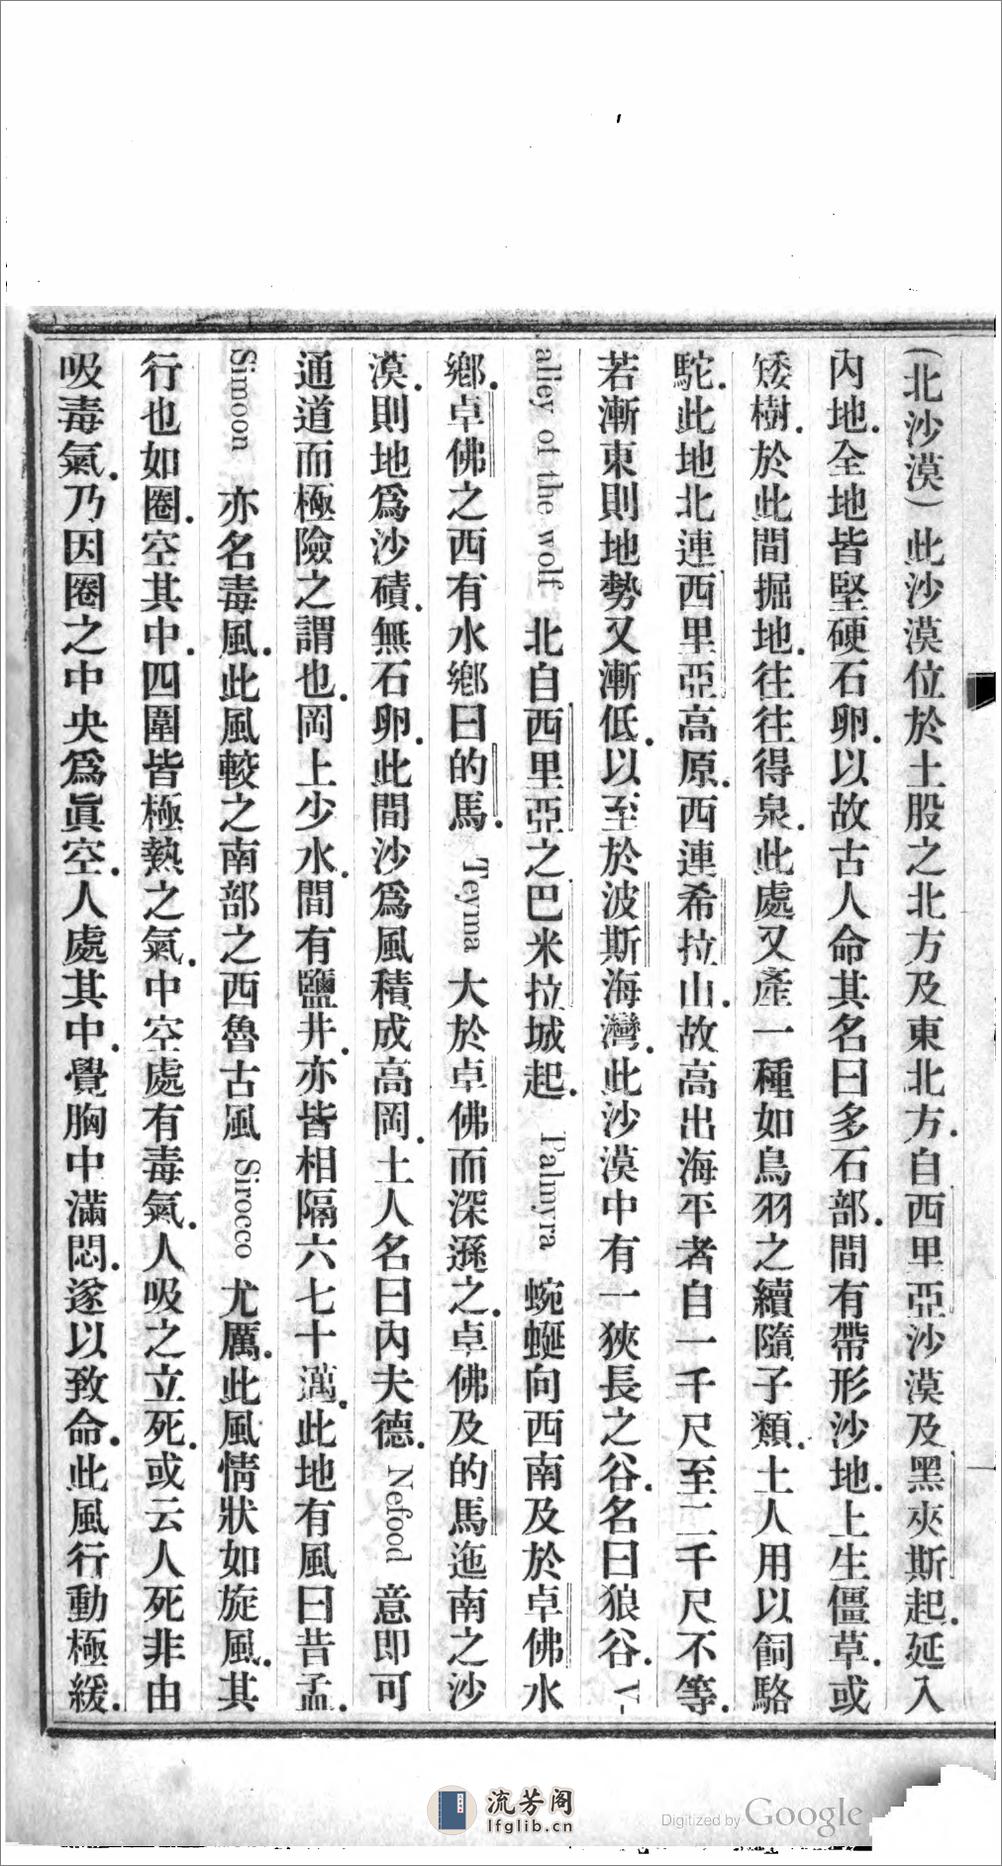 (北沙漠)此沙漠位於土股之北方及東北方.自西里亞沙漠及黑夾斯起.延入
內地.全地皆堅硬石卵.以故古人命其名曰多石部.間有帶形沙地.上生僵草.或
矮樹.於此間掘地.往往得泉.此處又產一種如鳥羽之續隨子類.土人用以飼駱
駝.此地北連西里亞高原.西連希拉山.故高出海平者自一千尺至二千尺不等.
若漸東則地勢又漸低.以至於波斯海灣.此沙漠中有一狹長之谷.名曰狼谷.V-
alley of the wolf 北自西里亞之巴米拉城起. Palmyra 蜿蜒向西南及於卓佛水
鄉.卓佛之西有水鄉曰的馬. Teyma 大於卓佛而深遜之.卓佛及的馬迤南之沙
漠.則地爲沙磧.無石卵.此間沙爲風積成高岡.土人名曰內夫德. Nefood 意即可
通道而極險之謂也.岡上少水.間有鹽井.亦皆相隔六七十邁.此地有風曰昔孟.
Simoon 亦名毒風.此風較之南部之西魯古風 Sirocco 尤厲.此風情狀如旋風.其
行也如圈.空其中.四圍皆極熱之氣.中空處有毒氣.人吸之立死.或云人死非由
吸毒氣.乃因圈之中央爲眞空.人處其中.覺胸中滿悶.遂以致命.此風行動極緩.
流芳阁
lfglib.cn
Digitized by Google